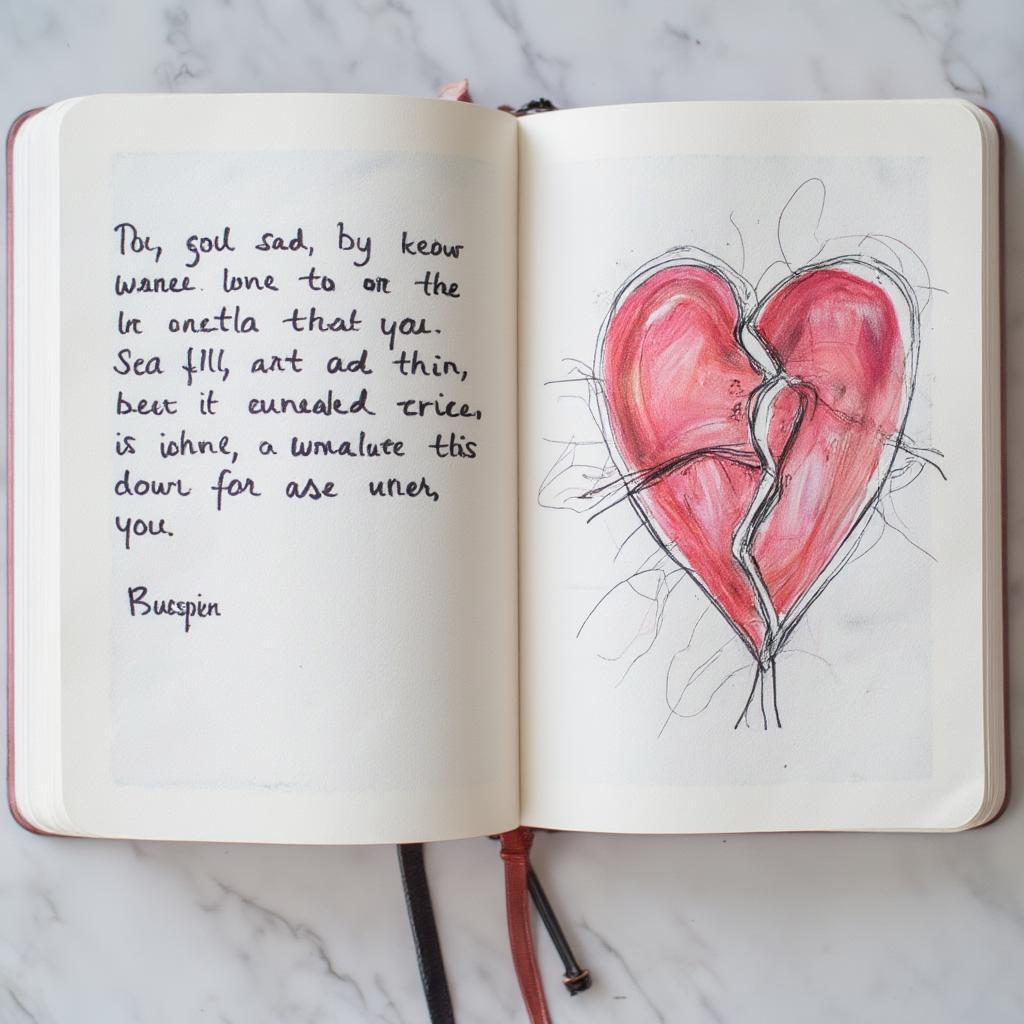 Toy, goul sad, by keour
wanee. lone to on the
le onetla that you.
Sea fill, art ad thin,
beet it cunealed crice,
is iohne, a wmalute this
dowr for ase uner,
you.
Bucspien